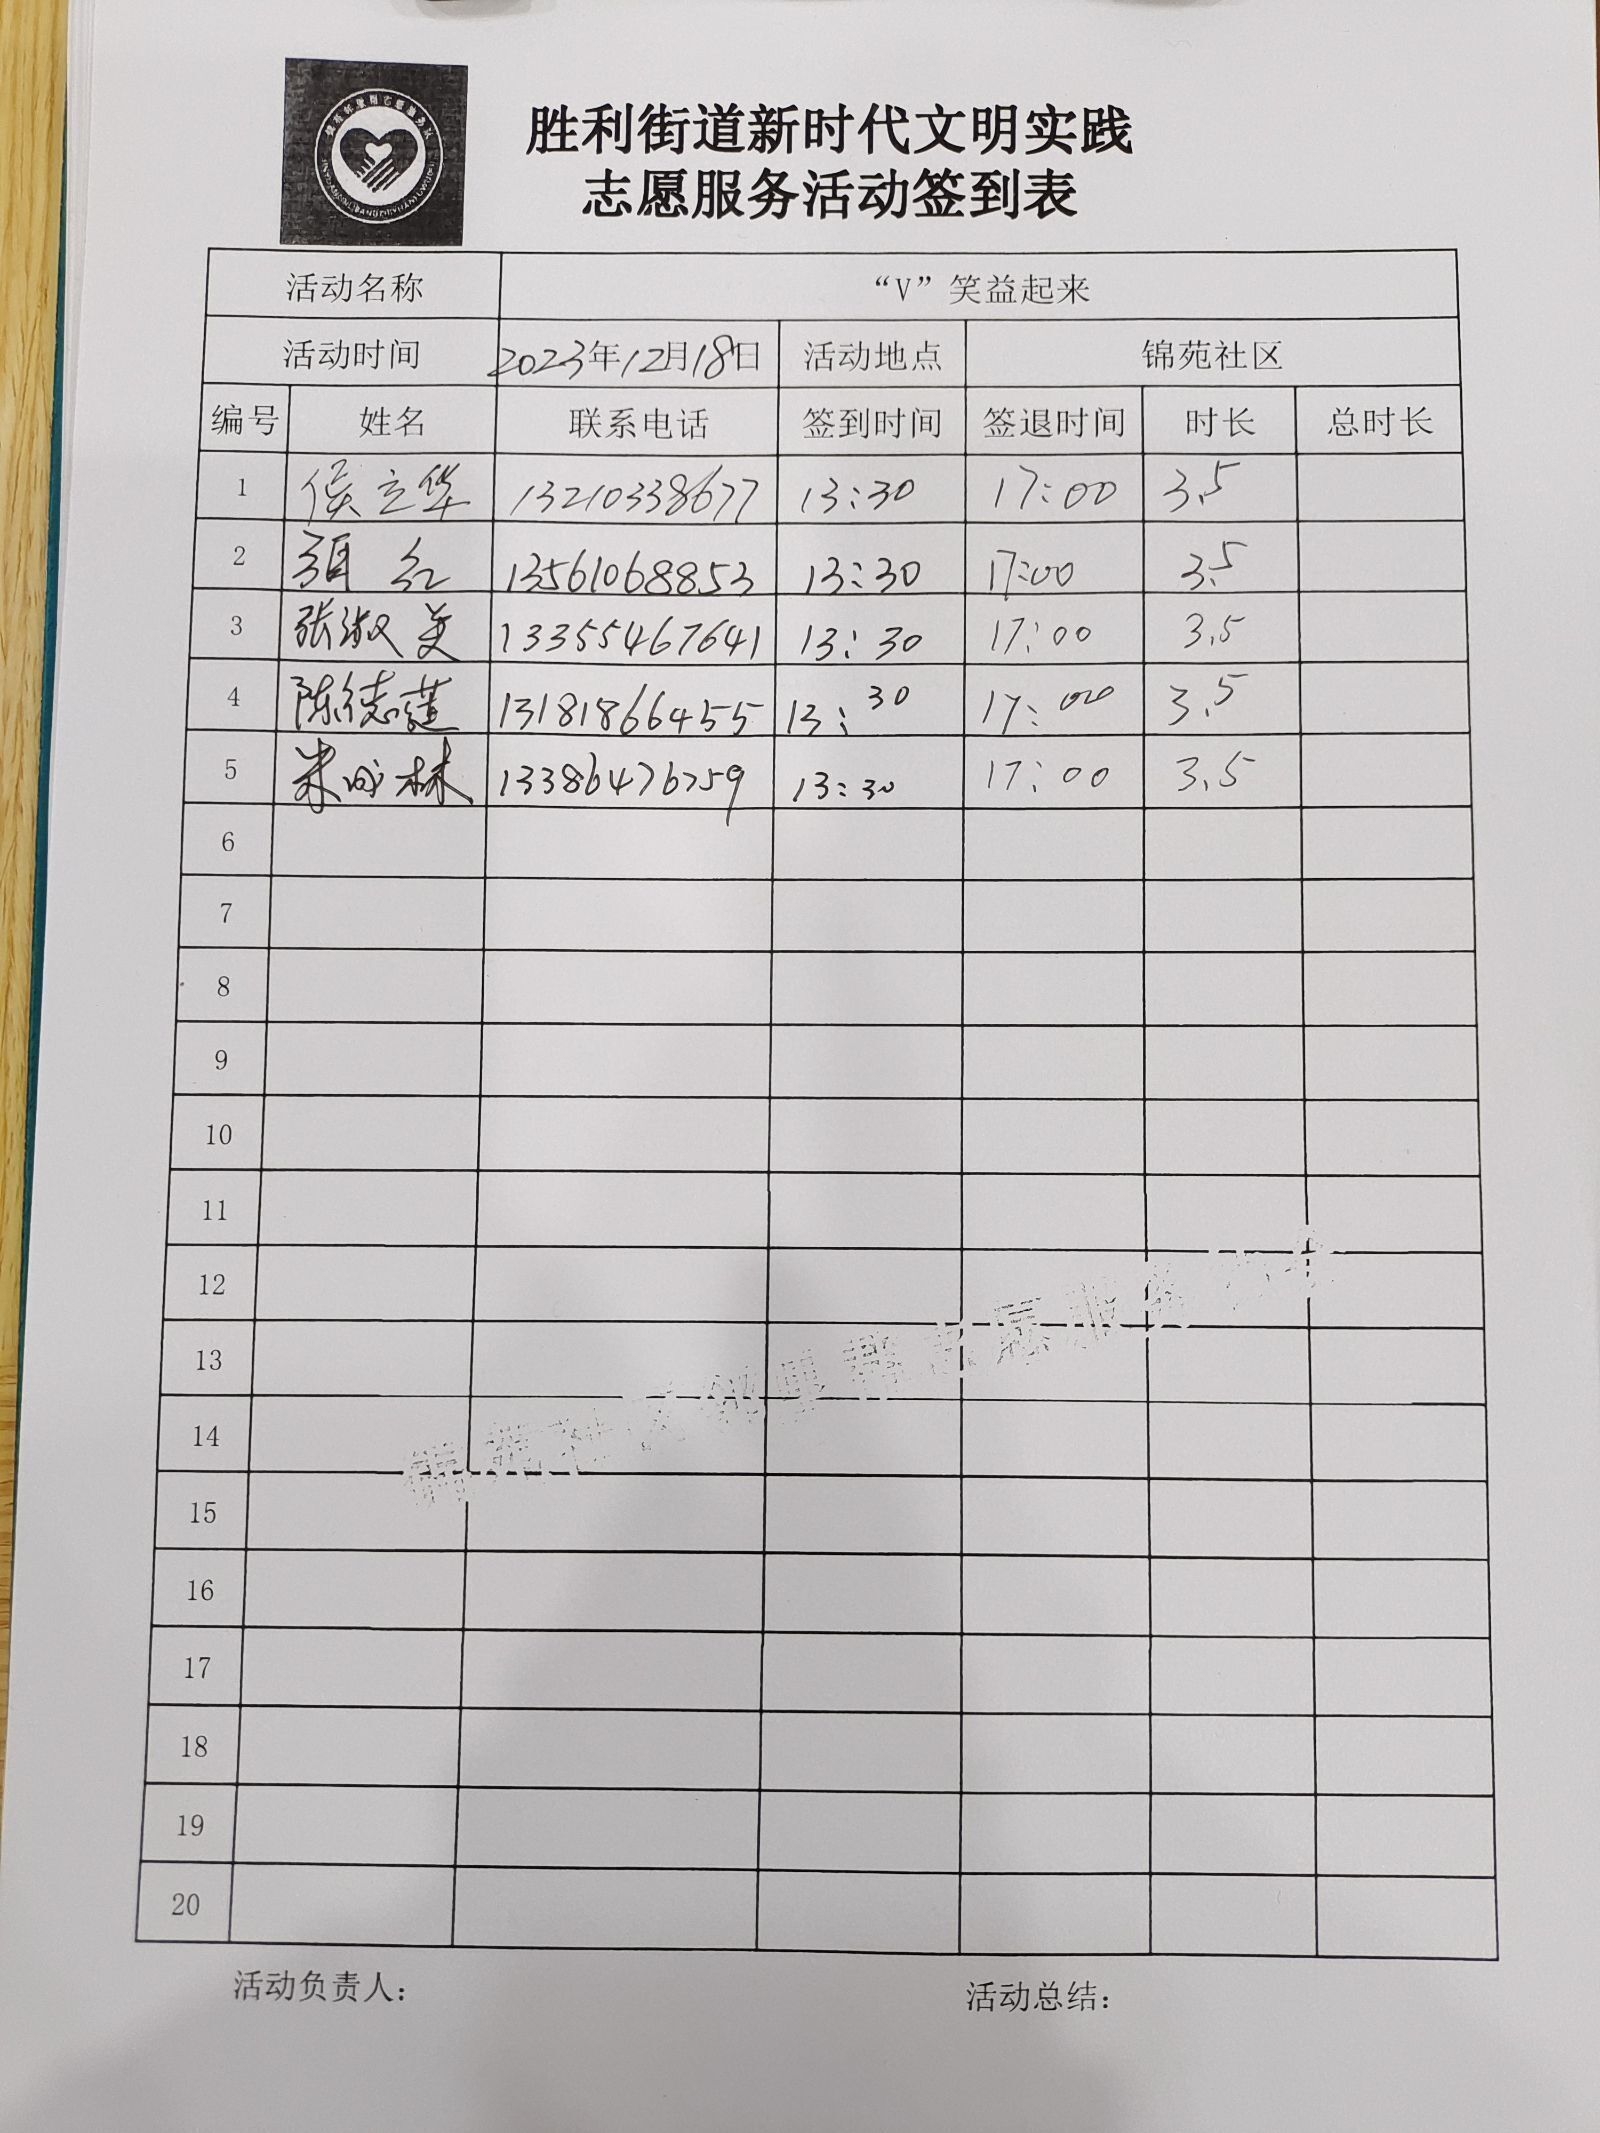 胜利街道新时代文明实践
志愿服务活动签到表
活动名称 “V”笑益起来
活动时间 2023年12月18日 活动地点 锦苑社区
编号 姓名 联系电话 签到时间 签退时间 时长 总时长
1 侯立华 13210338677 13:30 17:00 3.5
2 红 13561068853 13:30 17:00 3.5
3 张淑美 13355467641 13:30 17:00 3.5
4 陈德莲 13181866455 13:30 17:00 3.5
5 米成林 13386476759 13:30 17:00 3.5
6
7
8
9
10
11
12
13
14
15
16
17
18
19
20
活动负责人： 活动总结：